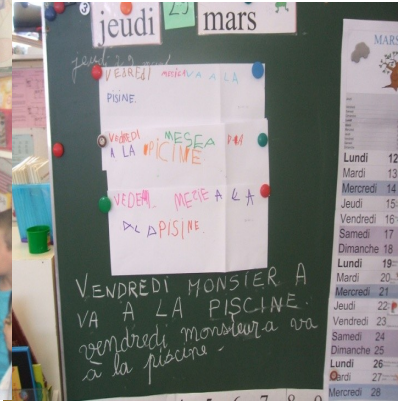 jeudi 23 mars
jeudi
VEBREDI VA A LA
PISINE.
VENDREDI MESEA
A LA PICINE
VEDEM. MEZIE A LA
PISINE.
VENDREDI MONSIER A
VA A LA PISCINE.
vendredi monsieur a va
à la piscine.
MARS
Lundi 12
Mardi 13
Mercredi 14
Jeudi 15
Vendredi 16
Samedi 17
Dimanche 18
Lundi 19
Mardi 20
Mercredi 21
Jeudi 22
Vendredi 23
Samedi 24
Dimanche 25
Lundi 26
Mardi 27
Mercredi 28